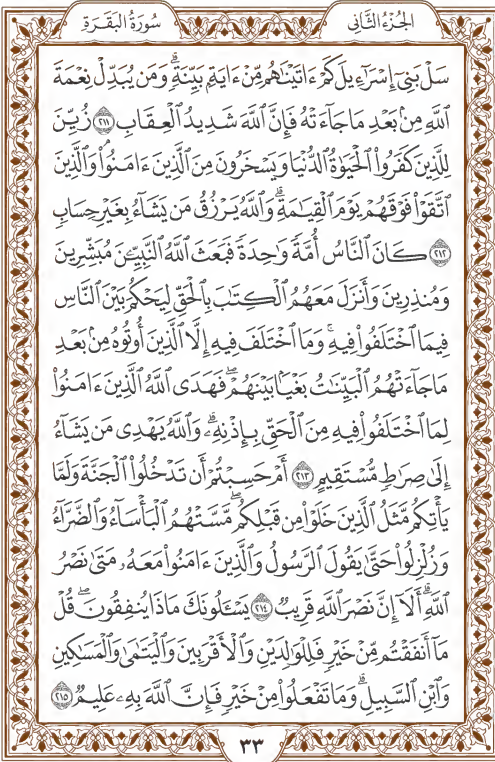 الجُزْءُ الثَّانِي
سُورَةُ البَقَرَةِ
سَلْ بَنِىٓ إِسْرَٰٓءِيلَ كَمْ ءَاتَيْنَٰهُم مِّنْ ءَايَةٍۭ بَيِّنَةٍۗ وَمَن يُبَدِّلْ نِعْمَةَ
ٱللَّهِ مِنۢ بَعْدِ مَا جَآءَتْهُ فَإِنَّ ٱللَّهَ شَدِيدُ ٱلْعِقَابِ ٢١١ زُيِّنَ
لِلَّذِينَ كَفَرُوا۟ ٱلْحَيَوٰةُ ٱلدُّنْيَا وَيَسْخَرُونَ مِنَ ٱلَّذِينَ ءَامَنُوا۟ۘ وَٱلَّذِينَ
ٱتَّقَوْا۟ فَوْقَهُمْ يَوْمَ ٱلْقِيَٰمَةِۗ وَٱللَّهُ يَرْزُقُ مَن يَشَآءُ بِغَيْرِ حِسَابٍ
٢١٢ كَانَ ٱلنَّاسُ أُمَّةً وَٰحِدَةً فَبَعَثَ ٱللَّهُ ٱلنَّبِيِّـۧنَ مُبَشِّرِينَ
وَمُنذِرِينَ وَأَنزَلَ مَعَهُمُ ٱلْكِتَٰبَ بِٱلْحَقِّ لِيَحْكُمَ بَيْنَ ٱلنَّاسِ
فِيمَا ٱخْتَلَفُوا۟ فِيهِۚ وَمَا ٱخْتَلَفَ فِيهِ إِلَّا ٱلَّذِينَ أُوتُوهُ مِنۢ بَعْدِ
مَا جَآءَتْهُمُ ٱلْبَيِّنَٰتُ بَغْيًۢا بَيْنَهُمْۖ فَهَدَى ٱللَّهُ ٱلَّذِينَ ءَامَنُوا۟
لِمَا ٱخْتَلَفُوا۟ فِيهِ مِنَ ٱلْحَقِّ بِإِذْنِهِۦۗ وَٱللَّهُ يَهْدِى مَن يَشَآءُ
إِلَىٰ صِرَٰطٍ مُّسْتَقِيمٍ ٢١٣ أَمْ حَسِبْتُمْ أَن تَدْخُلُوا۟ ٱلْجَنَّةَ وَلَمَّا
يَأْتِكُم مَّثَلُ ٱلَّذِينَ خَلَوْا۟ مِن قَبْلِكُمۖ مَّسَّتْهُمُ ٱلْبَأْسَآءُ وَٱلضَّرَّآءُ
وَزُلْزِلُوا۟ حَتَّىٰ يَقُولَ ٱلرَّسُولُ وَٱلَّذِينَ ءَامَنُوا۟ مَعَهُۥ مَتَىٰ نَصْرُ
ٱللَّهِۗ أَلَآ إِنَّ نَصْرَ ٱللَّهِ قَرِيبٌ ٢١٤ يَسْـَٔلُونَكَ مَاذَا يُنفِقُونَۖ قُلْ
مَآ أَنفَقْتُم مِّنْ خَيْرٍ فَلِلْوَٰلِدَيْنِ وَٱلْأَقْرَبِينَ وَٱلْيَتَٰمَىٰ وَٱلْمَسَٰكِينِ
وَٱبْنِ ٱلسَّبِيلِۗ وَمَا تَفْعَلُوا۟ مِنْ خَيْرٍ فَإِنَّ ٱللَّهَ بِهِۦ عَلِيمٌ ٢١٥
٣٣